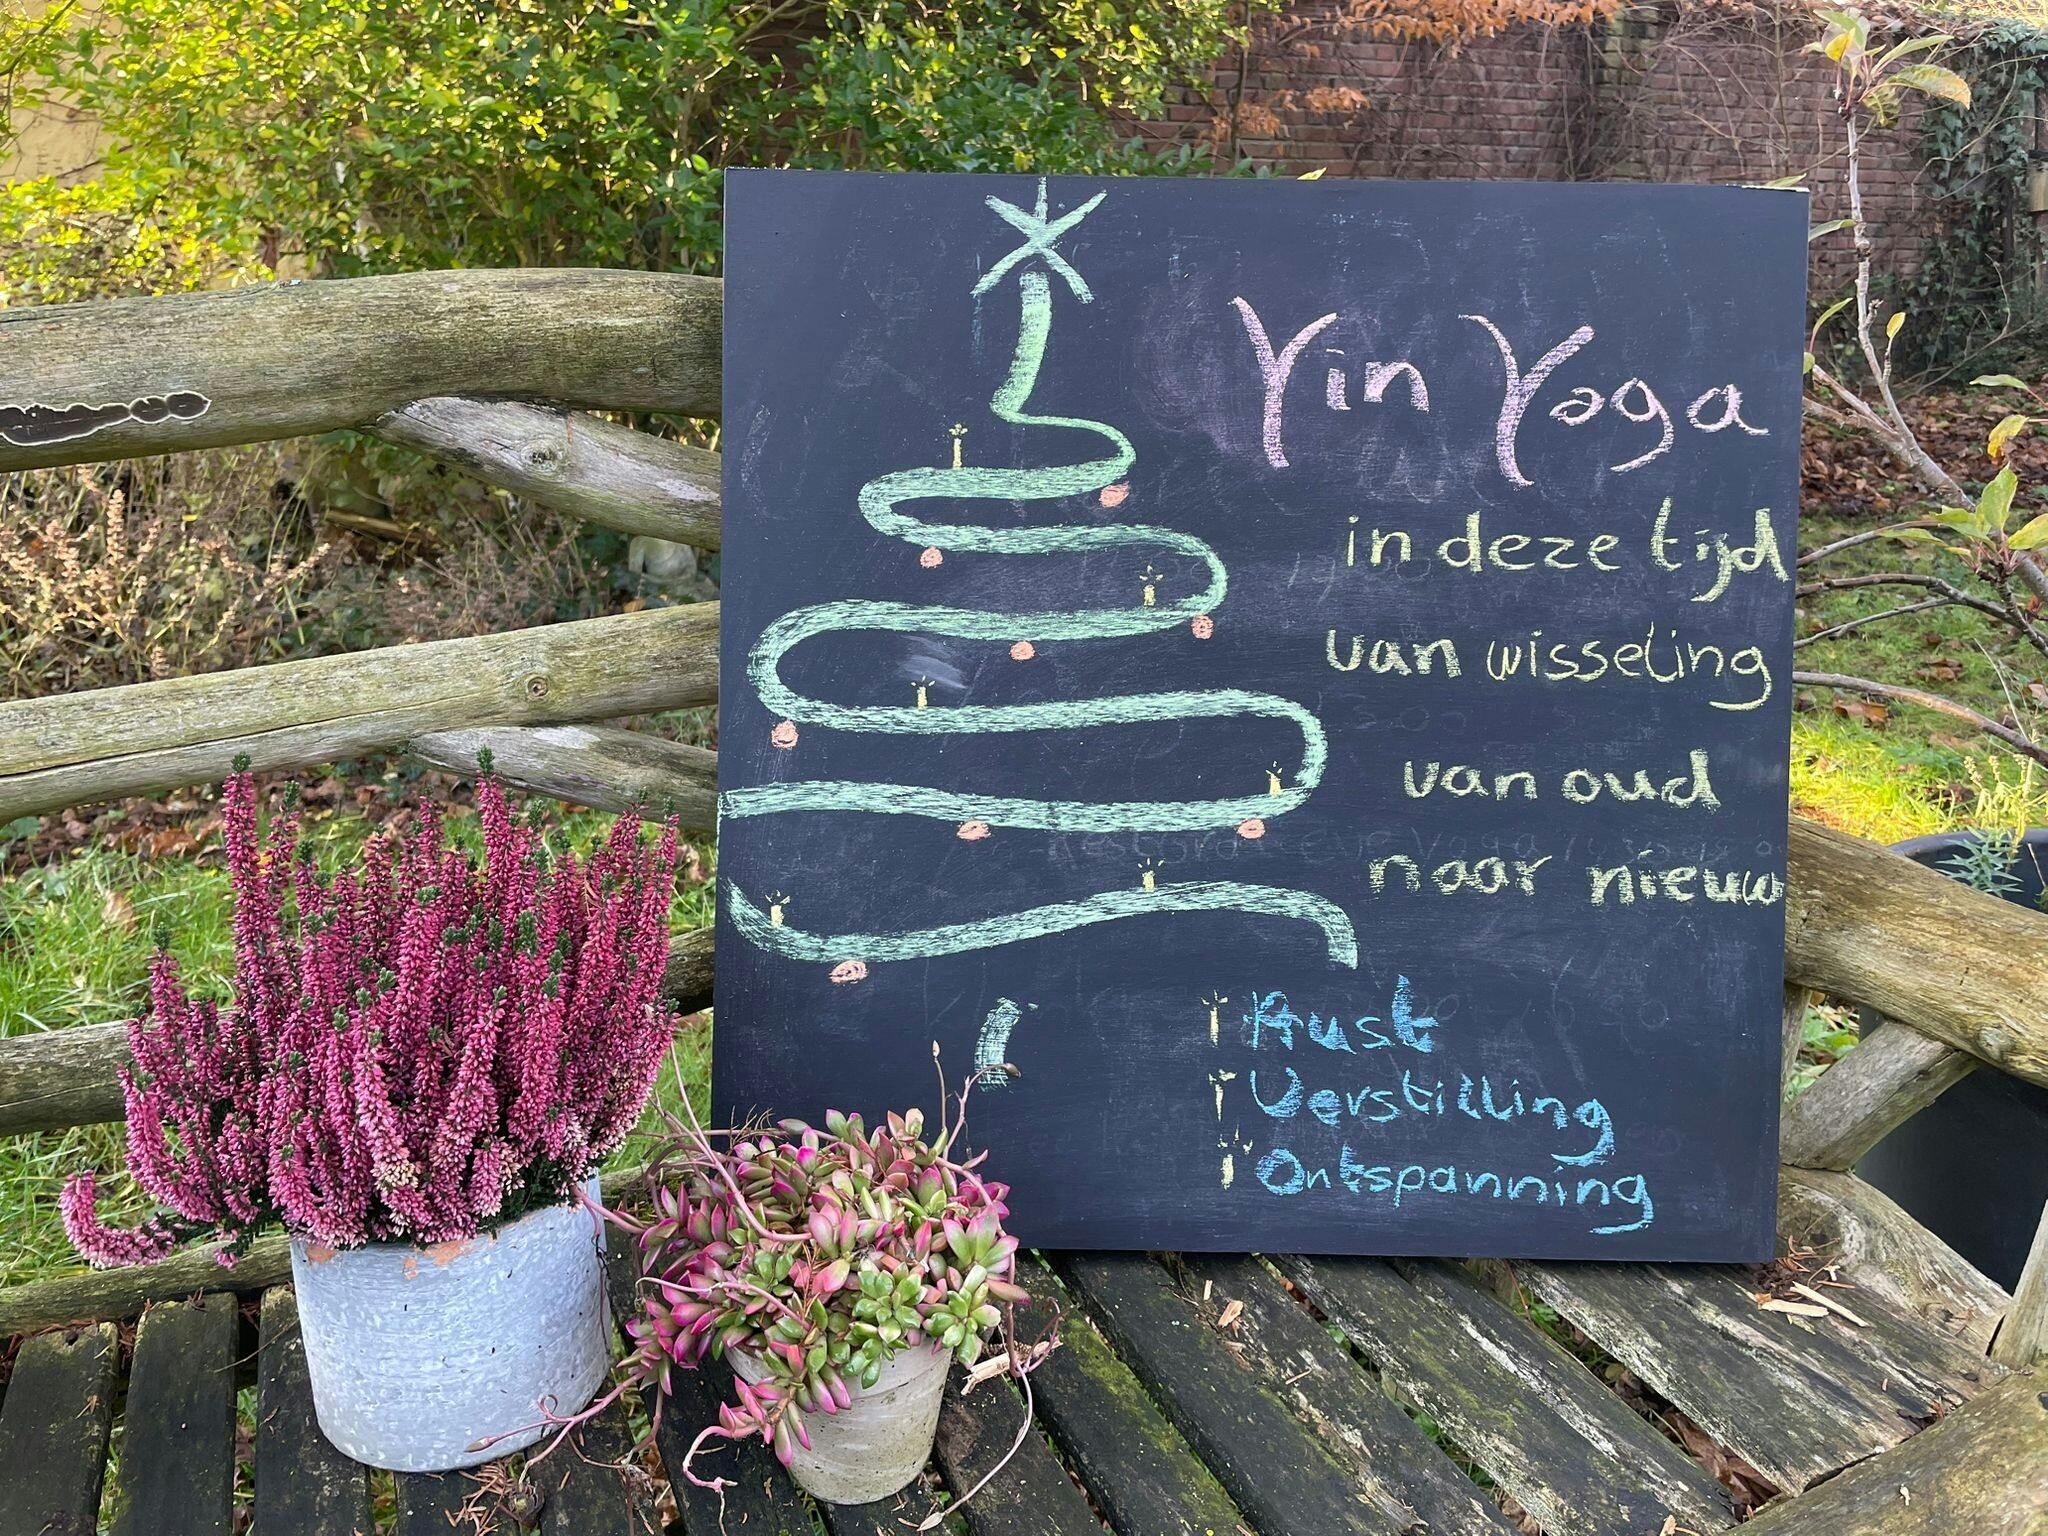 Yin Yoga
in deze tijd
van wisseling
van oud
naar nieuw
Rust
Verstilling
Ontspanning